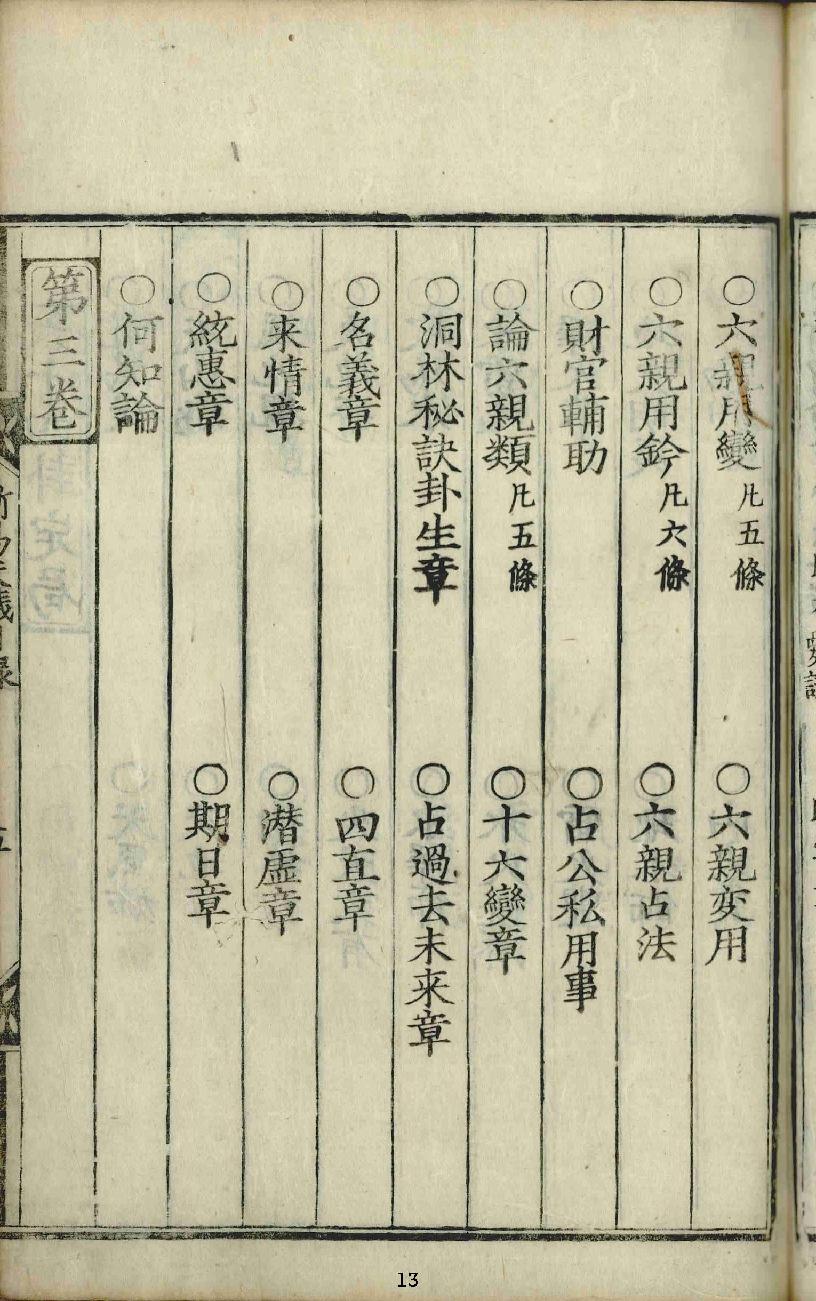 ○六親用變 凡五條 ○六親変用
○六親用鈐 凡六條 ○六親占法
○財官輔助 ○占公私用事
○論六親類 凡五條 ○十六變章
○洞林秘訣卦生章 ○占過去未来章
○名義章 ○四直章
○来情章 ○潜虚章
○統惠章 ○期日章
○何知論
第三卷
13